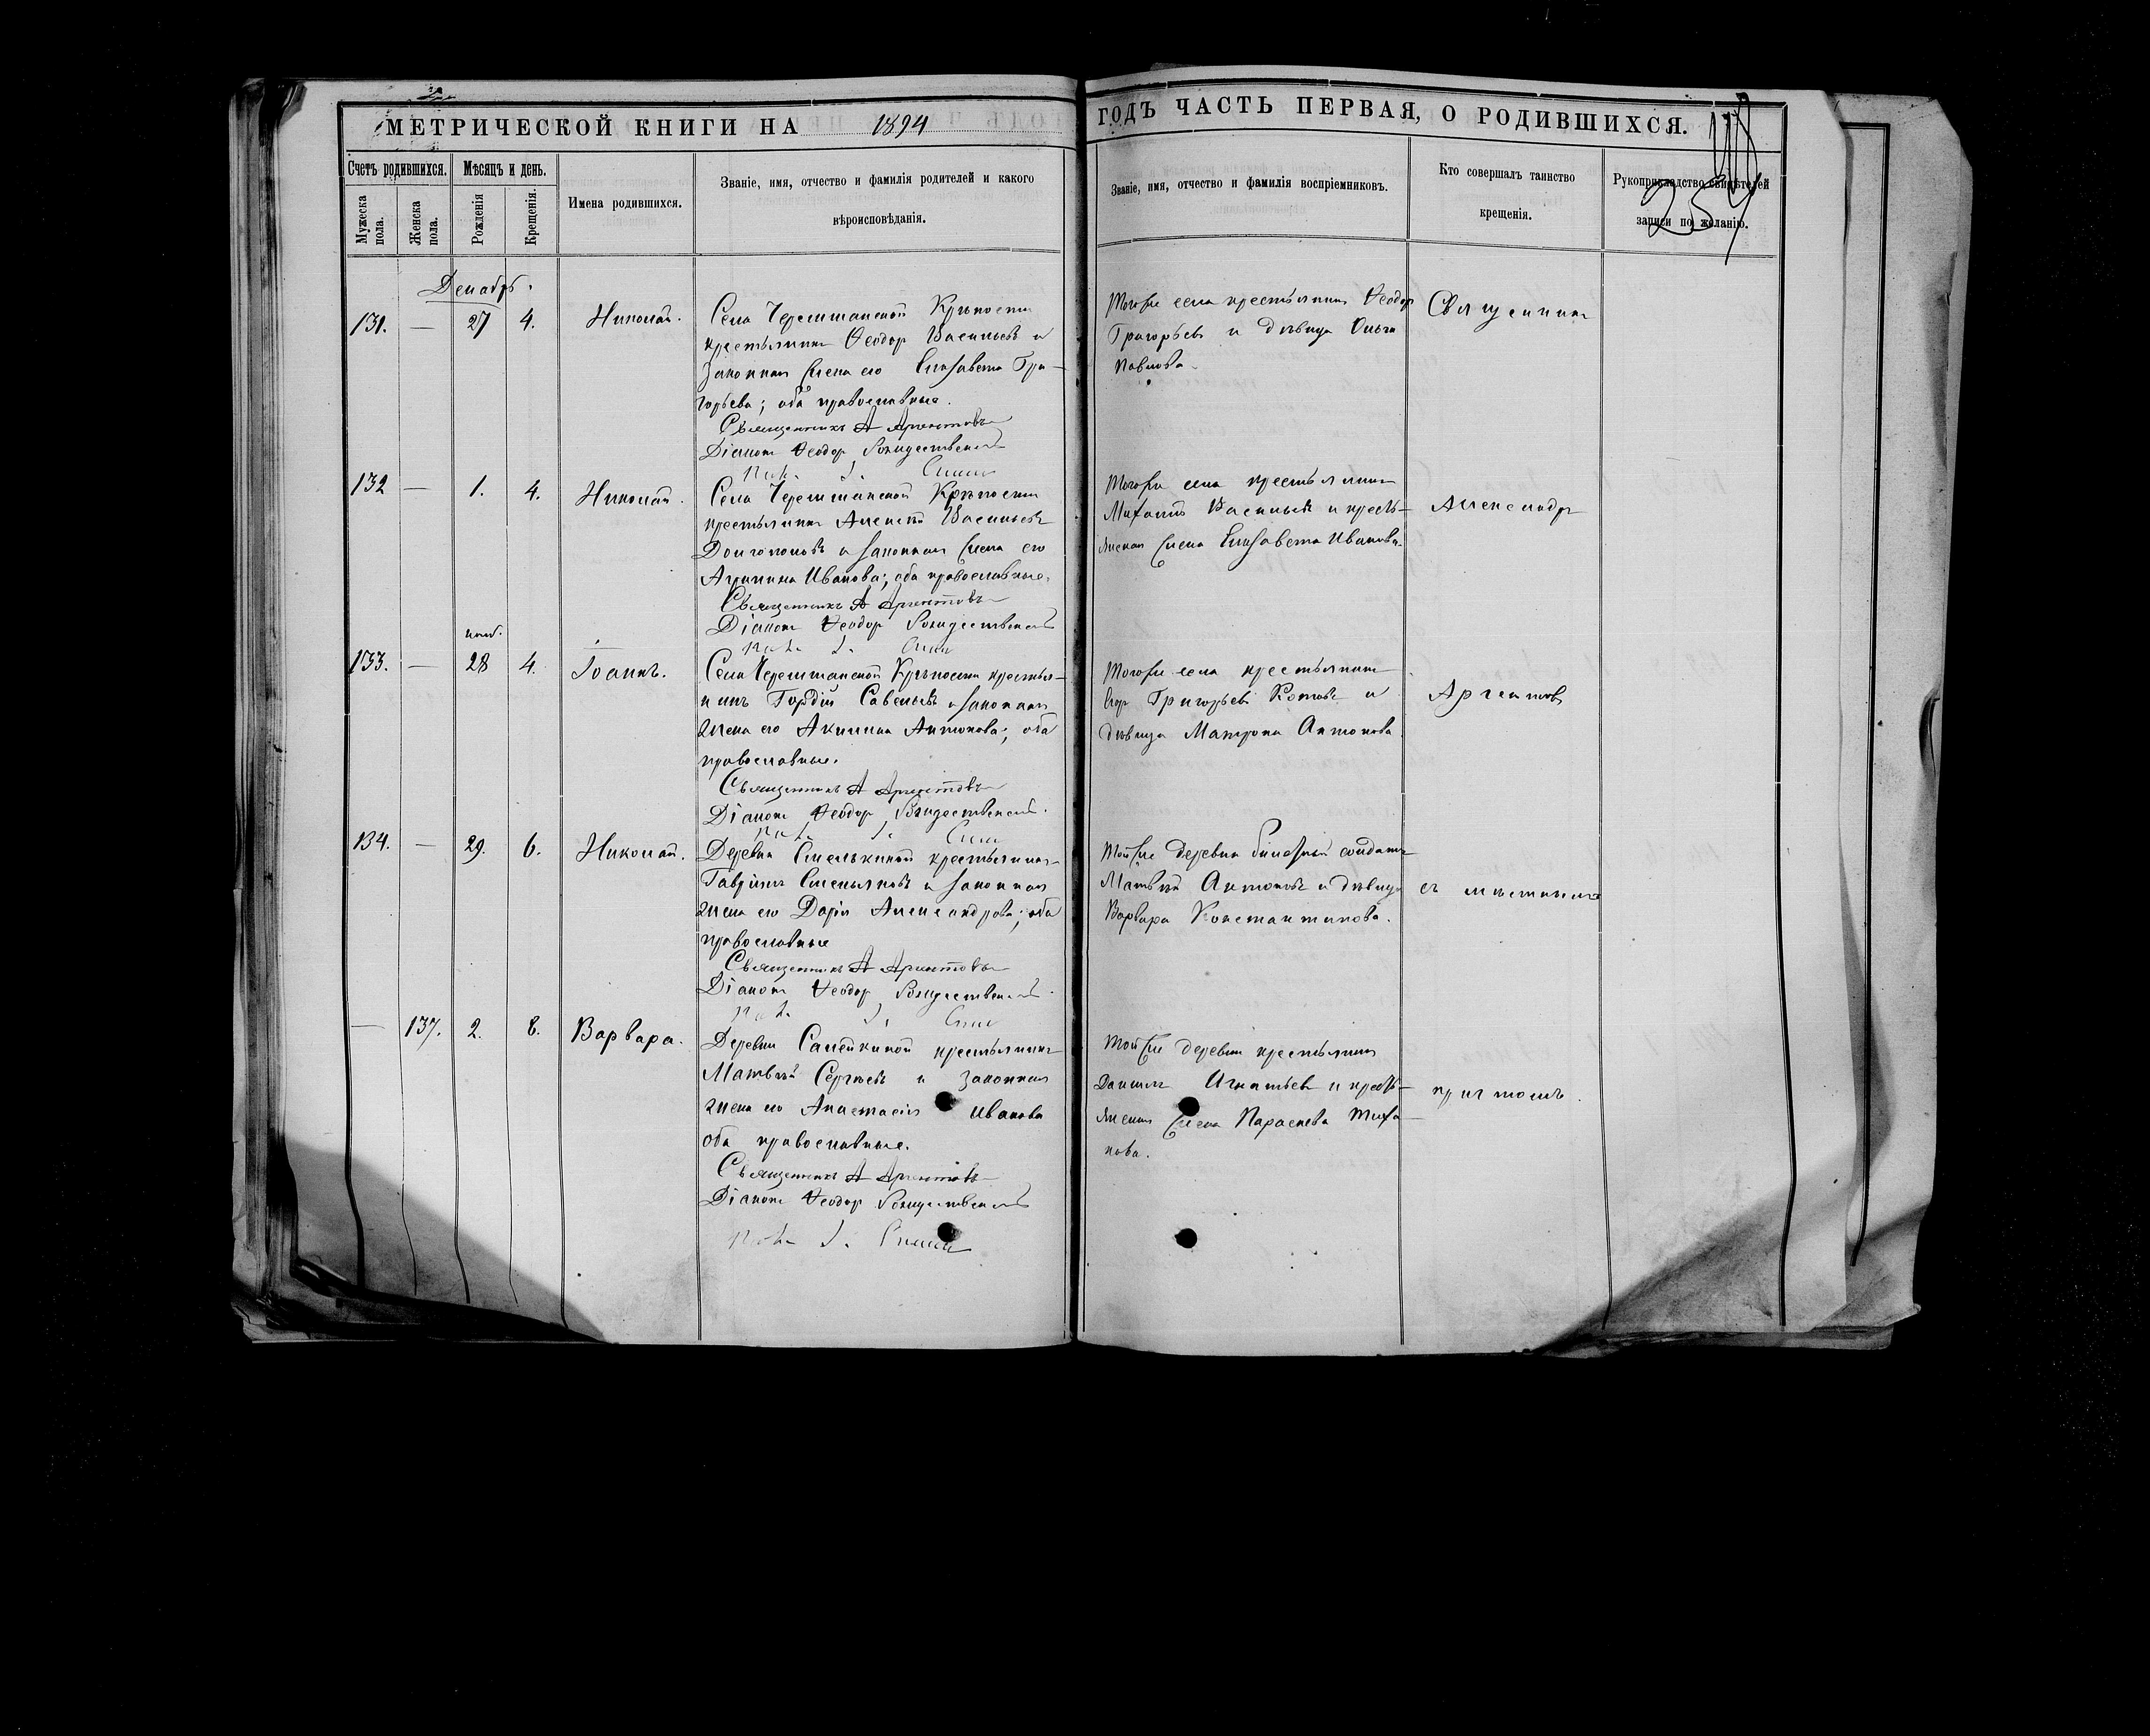 МЕТРИЧЕСКОЙ КНИГИ НА 1894 ГОДЪ ЧАСТЬ ПЕРВАЯ, О РОДИВШИХСЯ.
Счетъ родившихся.
Мужеска пола.
Женска пола.
Мѣсяцъ и день.
Рожденія
Крещенія.
Имена родившихся.
Званіе, имя, отчество и фамилія родителей и какого
вѣроисповѣданія.
Званіе, имя, отчество и фамилія воспріемниковъ.
Кто совершалъ таинство
крещенія.
Рукоприкладство свидѣтелей
записи по желанію.
Декабрь.
131. — 27 4. Николай.
Села Черемшанской Крѣпости
крестьянинъ Ѳеодоръ Васильевъ и
законная жена его Елизавета Гри-
горьева; оба православные.
Священникъ А Аргентовъ
Діаконъ Ѳеодоръ Рождественскій
Тогоже села крестьянинъ Ѳеодоръ
Григорьевъ и дѣвица Ольга
Павлова.
Священникъ
132 — 1. 4. Николай.
Села Черемшанской Крѣпости
крестьянинъ Алексѣй Васильевъ
Долгополовъ и законная жена его
Акилина Иванова; оба православные.
Священникъ А Аргентовъ
Діаконъ Ѳеодоръ Рождественскій
Тогоже села крестьянинъ
Михаилъ Васильевъ и кресть-
янская жена Елизавета Иванова.
Александръ
нояб.
133. — 28 4. Іоаннъ.
Села Черемшанской Крѣпости крестья-
нинъ Гордій Савельевъ и законная
жена его Акилина Антонова; оба
православные.
Священникъ А Аргентовъ
Діаконъ Ѳеодоръ Рождественскій.
Тогоже села крестьянинъ
Егоръ Григорьевъ Котовъ и
дѣвица Матрона Антонова.
Аргентовъ
134. — 29. 6. Николай.
Деревни Емелькиной крестьянинъ
Гавріилъ Емельяновъ и законная
жена его Дарія Александрова; оба
православные
Священникъ А Аргентовъ
Діаконъ Ѳеодоръ Рождественскій.
Тойже деревни билетный солдатъ
Матвѣй Антоновъ и дѣвица
Варвара Константинова.
съ мѣстнымъ
— 137. 2. 8. Варвара.
Деревни крестьянинъ
Матвѣй Сергѣевъ и законная
жена его Анастасія Иванова
оба православные.
Священникъ А Аргентовъ
Діаконъ Ѳеодоръ Рождественскій
Тойже деревни крестьянинъ
Даніилъ Игнатьевъ и кресть-
янская жена Параскева
причтомъ.